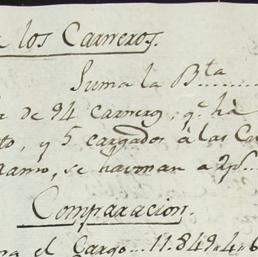 e los Carneros.
Suma la B.ta
a de 94 carner.s q.e há
to, y 5 cargados á las Ca
Ramo, se harman a 2 p.s
Comparacion.
el Cargo... 11.849.4.6